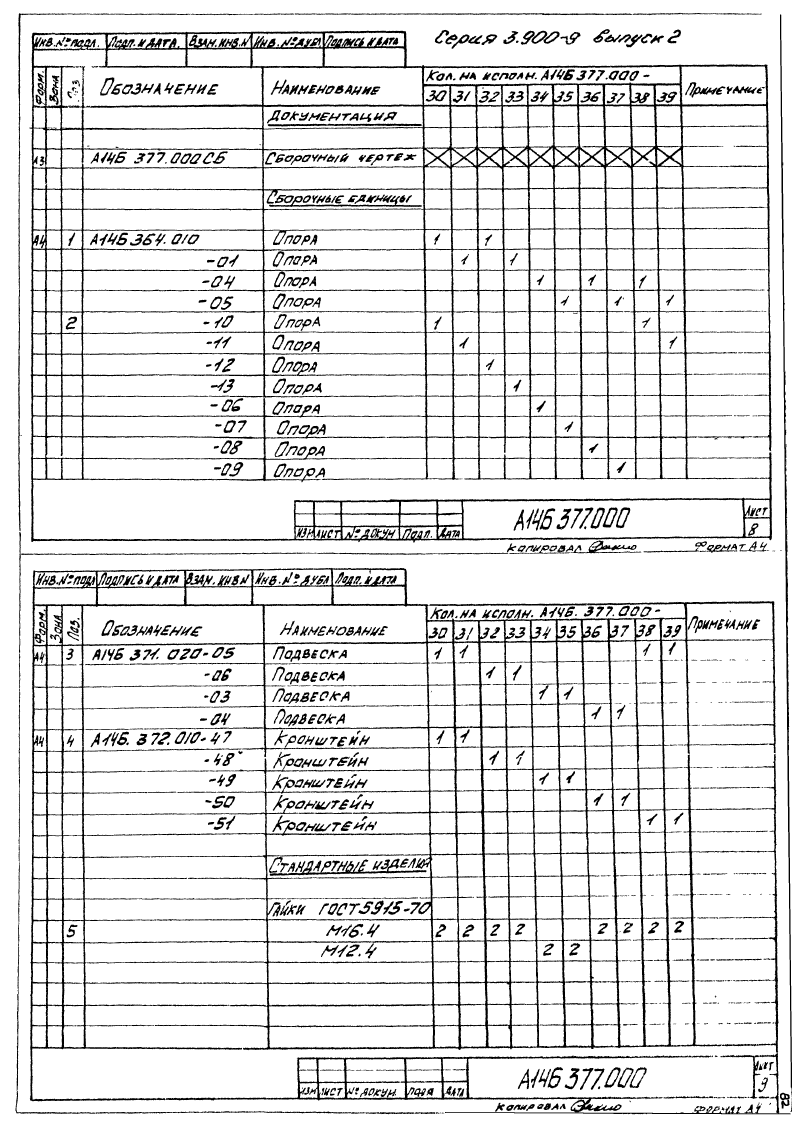 Серия 3.900-9 выпуск 2
Инв.№ подл. Подп. и дата. Взам.инв.№ Инв.№ дубл Подпись и дата
Форм. Зона Поз Обозначение Наименование Кол. на исполн. А14Б 377.000- Примечание
30 31 32 33 34 35 36 37 38 39
Документация
А3 А14Б 377.000СБ Сборочный чертеж
Сборочные единицы
А4 1 А14Б 364.010 Опора 1 1
-01 Опора 1 1
-04 Опора 1 1 1
-05 Опора 1 1 1
2 -10 Опора 1 1
-11 Опора 1 1
-12 Опора 1
-13 Опора 1
-06 Опора 1
-07 Опора 1
-08 Опора 1
-09 Опора 1
Изм Лист № докум Подп. Дата А14Б 377.000 Лист 8
Копировал Формат А4
Инв.№ подл Подпись и дата Взам. инв № Инв.№ дубл Подп. и дата
Форм. Зона Поз. Обозначение Наименование Кол. на исполн. А14Б. 377.000- Примечание
30 31 32 33 34 35 36 37 38 39
А4 3 А14Б 371.020-05 Подвеска 1 1 1 1
-06 Подвеска 1 1
-03 Подвеска 1 1
-04 Подвеска 1 1
А4 4 А14Б. 372.010-47 Кронштейн 1 1
-48 Кронштейн 1 1
-49 Кронштейн 1 1
-50 Кронштейн 1 1
-51 Кронштейн 1 1
Стандартные изделия
Гайки ГОСТ 5915-70
5 М16.4 2 2 2 2 2 2 2 2
М12.4 2 2
Изм Лист № докум. Подп Дата А14Б 377.000 Лист 9
Копировал Формат А4
82